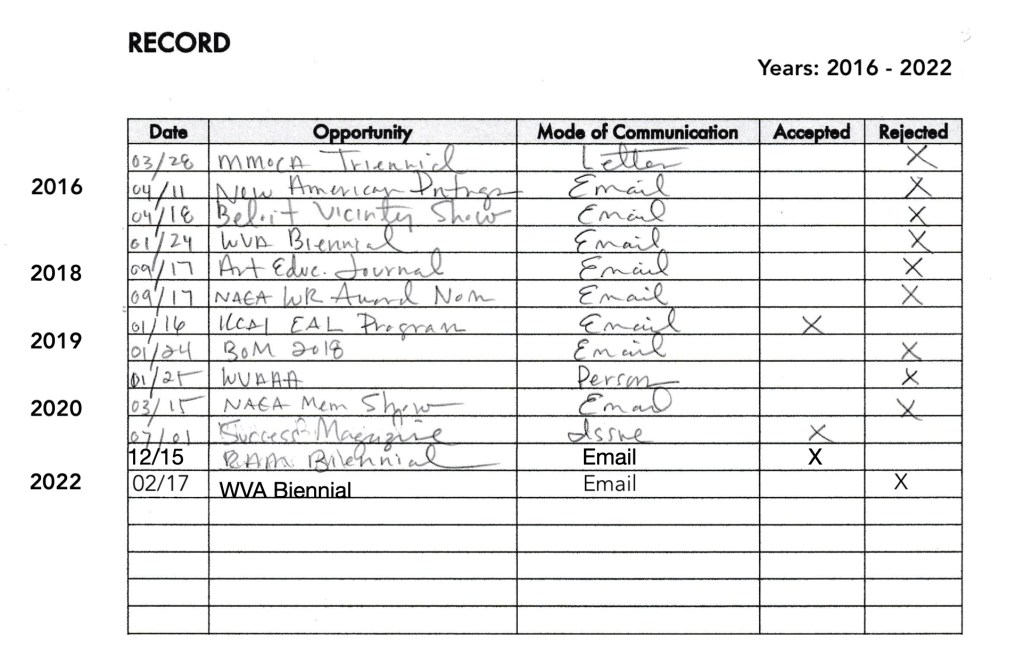 RECORD
Years: 2016 - 2022
Date Opportunity Mode of Communication Accepted Rejected
03/28 MMoCA Triennial Letter X
2016
04/11 New American Pntngs Email X
04/18 Beloit Vicinity Show Email X
01/24 WVA Biennial Email X
2018
09/17 Art Educ. Journal Email X
09/17 NAEA WR Award Nom Email X
01/16 EAL Program Email X
2019
01/24 BoM 2018 Email X
01/25 WVAAA Person X
2020
03/15 NAEA Mem Show Email X
07/01 Success Magazine Issue X
12/15 RAM Biennial Email X
2022
02/17 WVA Biennial Email X